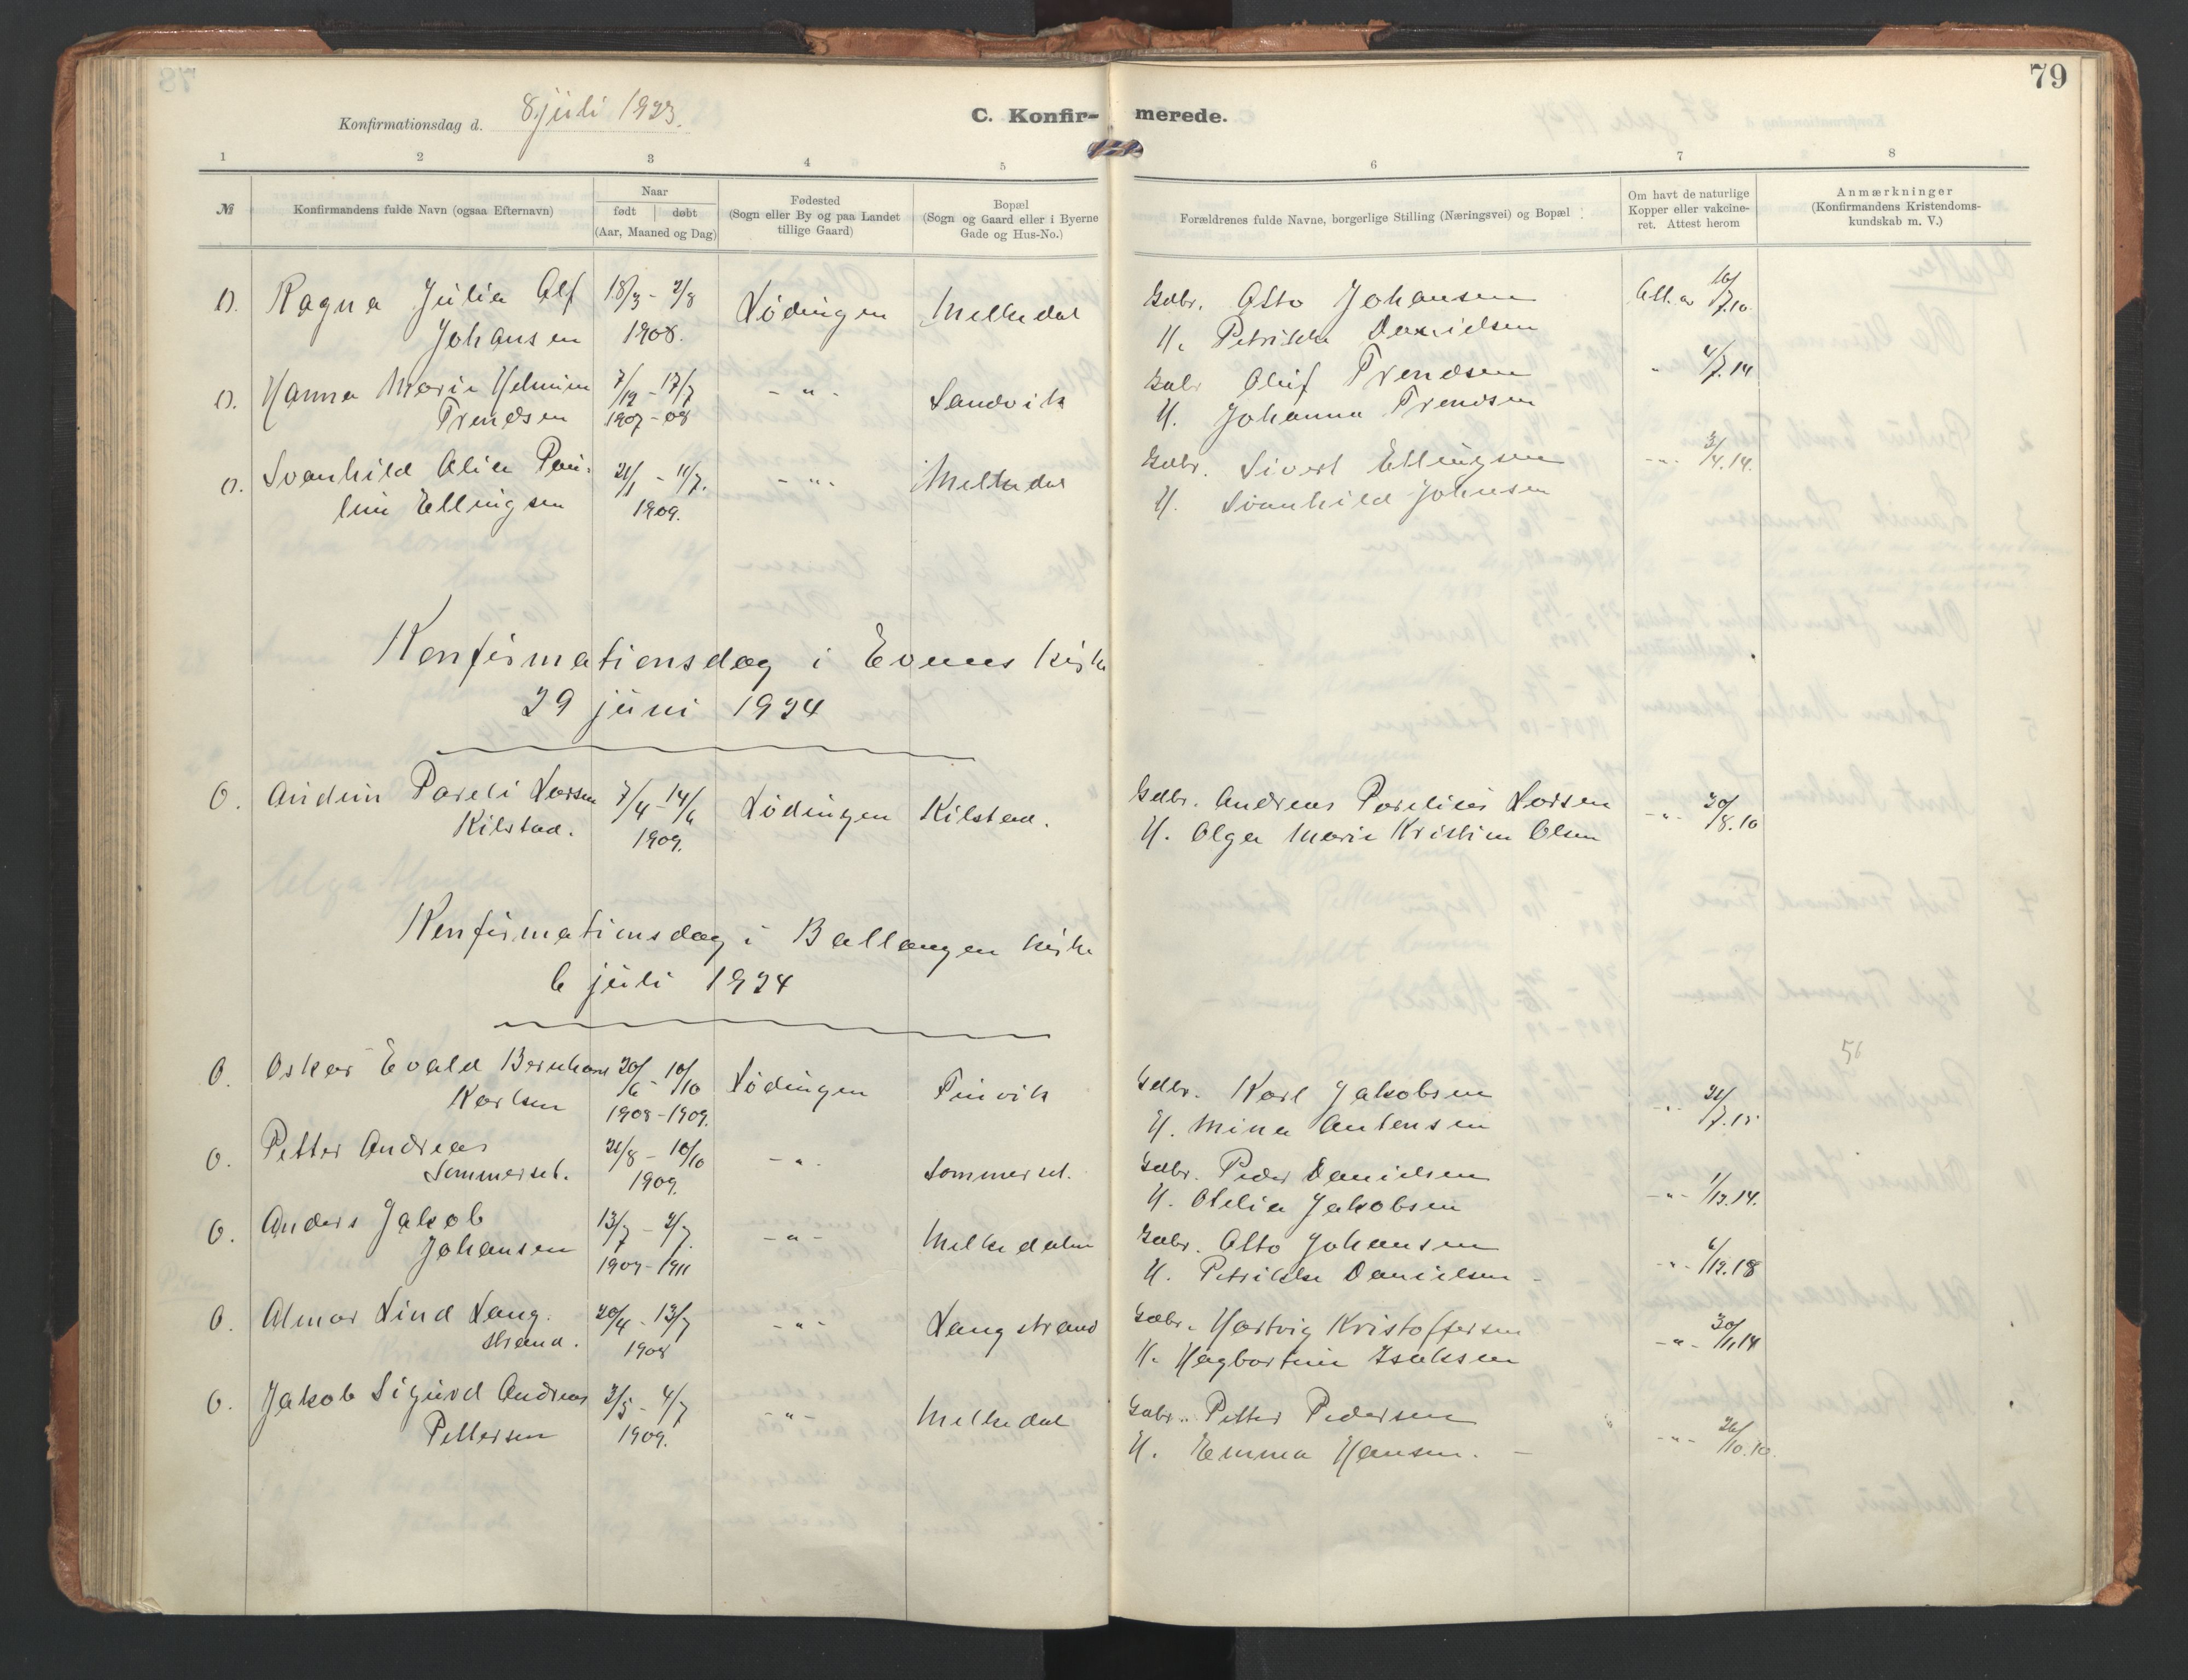 79
Konfirmationsdag d. 8 juli 1923.
C. Konfir- merede.
1 2 3 4 5 6 7 8
№
Konfirmandens fulde Navn (ogsaa Efternavn)
Naar
født | døbt
(Aar, Maaned og Dag)
Fødested
(Sogn eller By og paa Landet
tillige Gaard)
Bopæl
(Sogn og Gaard eller i Byerne
Gade og Hus-No.)
Forældrenes fulde Navne, borgerlige Stilling (Næringsvei) og Bopæl
Om havt de naturlige
Kopper eller vakcine-
ret. Attest herom
Anmærkninger
(Konfirmandens Kristendoms-
kundskab m. V.)
0. Ragna Julie Alf 18/3 - 2/8 Lødingen Melkedal Gdbr. Otto Johansen Att. a 10/7.10
Johansen 1908. H. Petrikke Danielsen
0. Hanna Marie Helmine 7/12 - 17/7 - " - Sandvik Gdbr Oluf Trendsen " 4/7.14
Trendsen 1907-08 H. Johanna Trendsen
0. Svanhild Alie Pau- 21/1 - 11/7. - " - Melkedal Gdbr. Sivert Ellingsen - " - 3/4.14.
line Ellingsen 1909. H. Svanhild Johnsen
Konfirmationsdag i Evenes Kirke
29 juni 1924
0. Audun Pareli Larsen 7/4 - 14/6 Lødingen Kilstad. Gdbr. Andreas Parelius Larsen - " - 30/8.10
Kilstad. 1909. H. Olga Marie Kristine Olsen
Konfirmationsdag i Ballangen kirke
6 juli 1924
56
0. Oskar Evald Bernhard 20/6 - 10/10 Lødingen Tinvik Gdbr. Karl Jakobsen - " - 21/7.15
Karlsen 1908-1909. H. Mina Antonsen
0. Petter Andreas 21/8 - 10/10 - " - Sommerset. Gdbr. Peder Danielsen - " - 1/12.14.
Sommerset. 1909. H. Otelie Jakobsen
0. Anders Jakob 13/7 - 2/7. - " - Melkedalen Gdbr. Otto Johansen - " - 6/12.18
Johansen 1909-1911 H. Petrikke Danielsen -
0. Almar Lind Lang- 20/4 - 13/7 - " - Langstrand Gdbr. Hartvig Kristoffersen - " - 30/11.14
strand. 1908 H. Hagbartine Isaksen
0. Jakob Sigurd Andreas 2/5 - 4/7 - " - Melkedal Gdbr. Petter Pedersen - " - 26/10.10.
Pettersen 1909. H. Emma Hansen. -